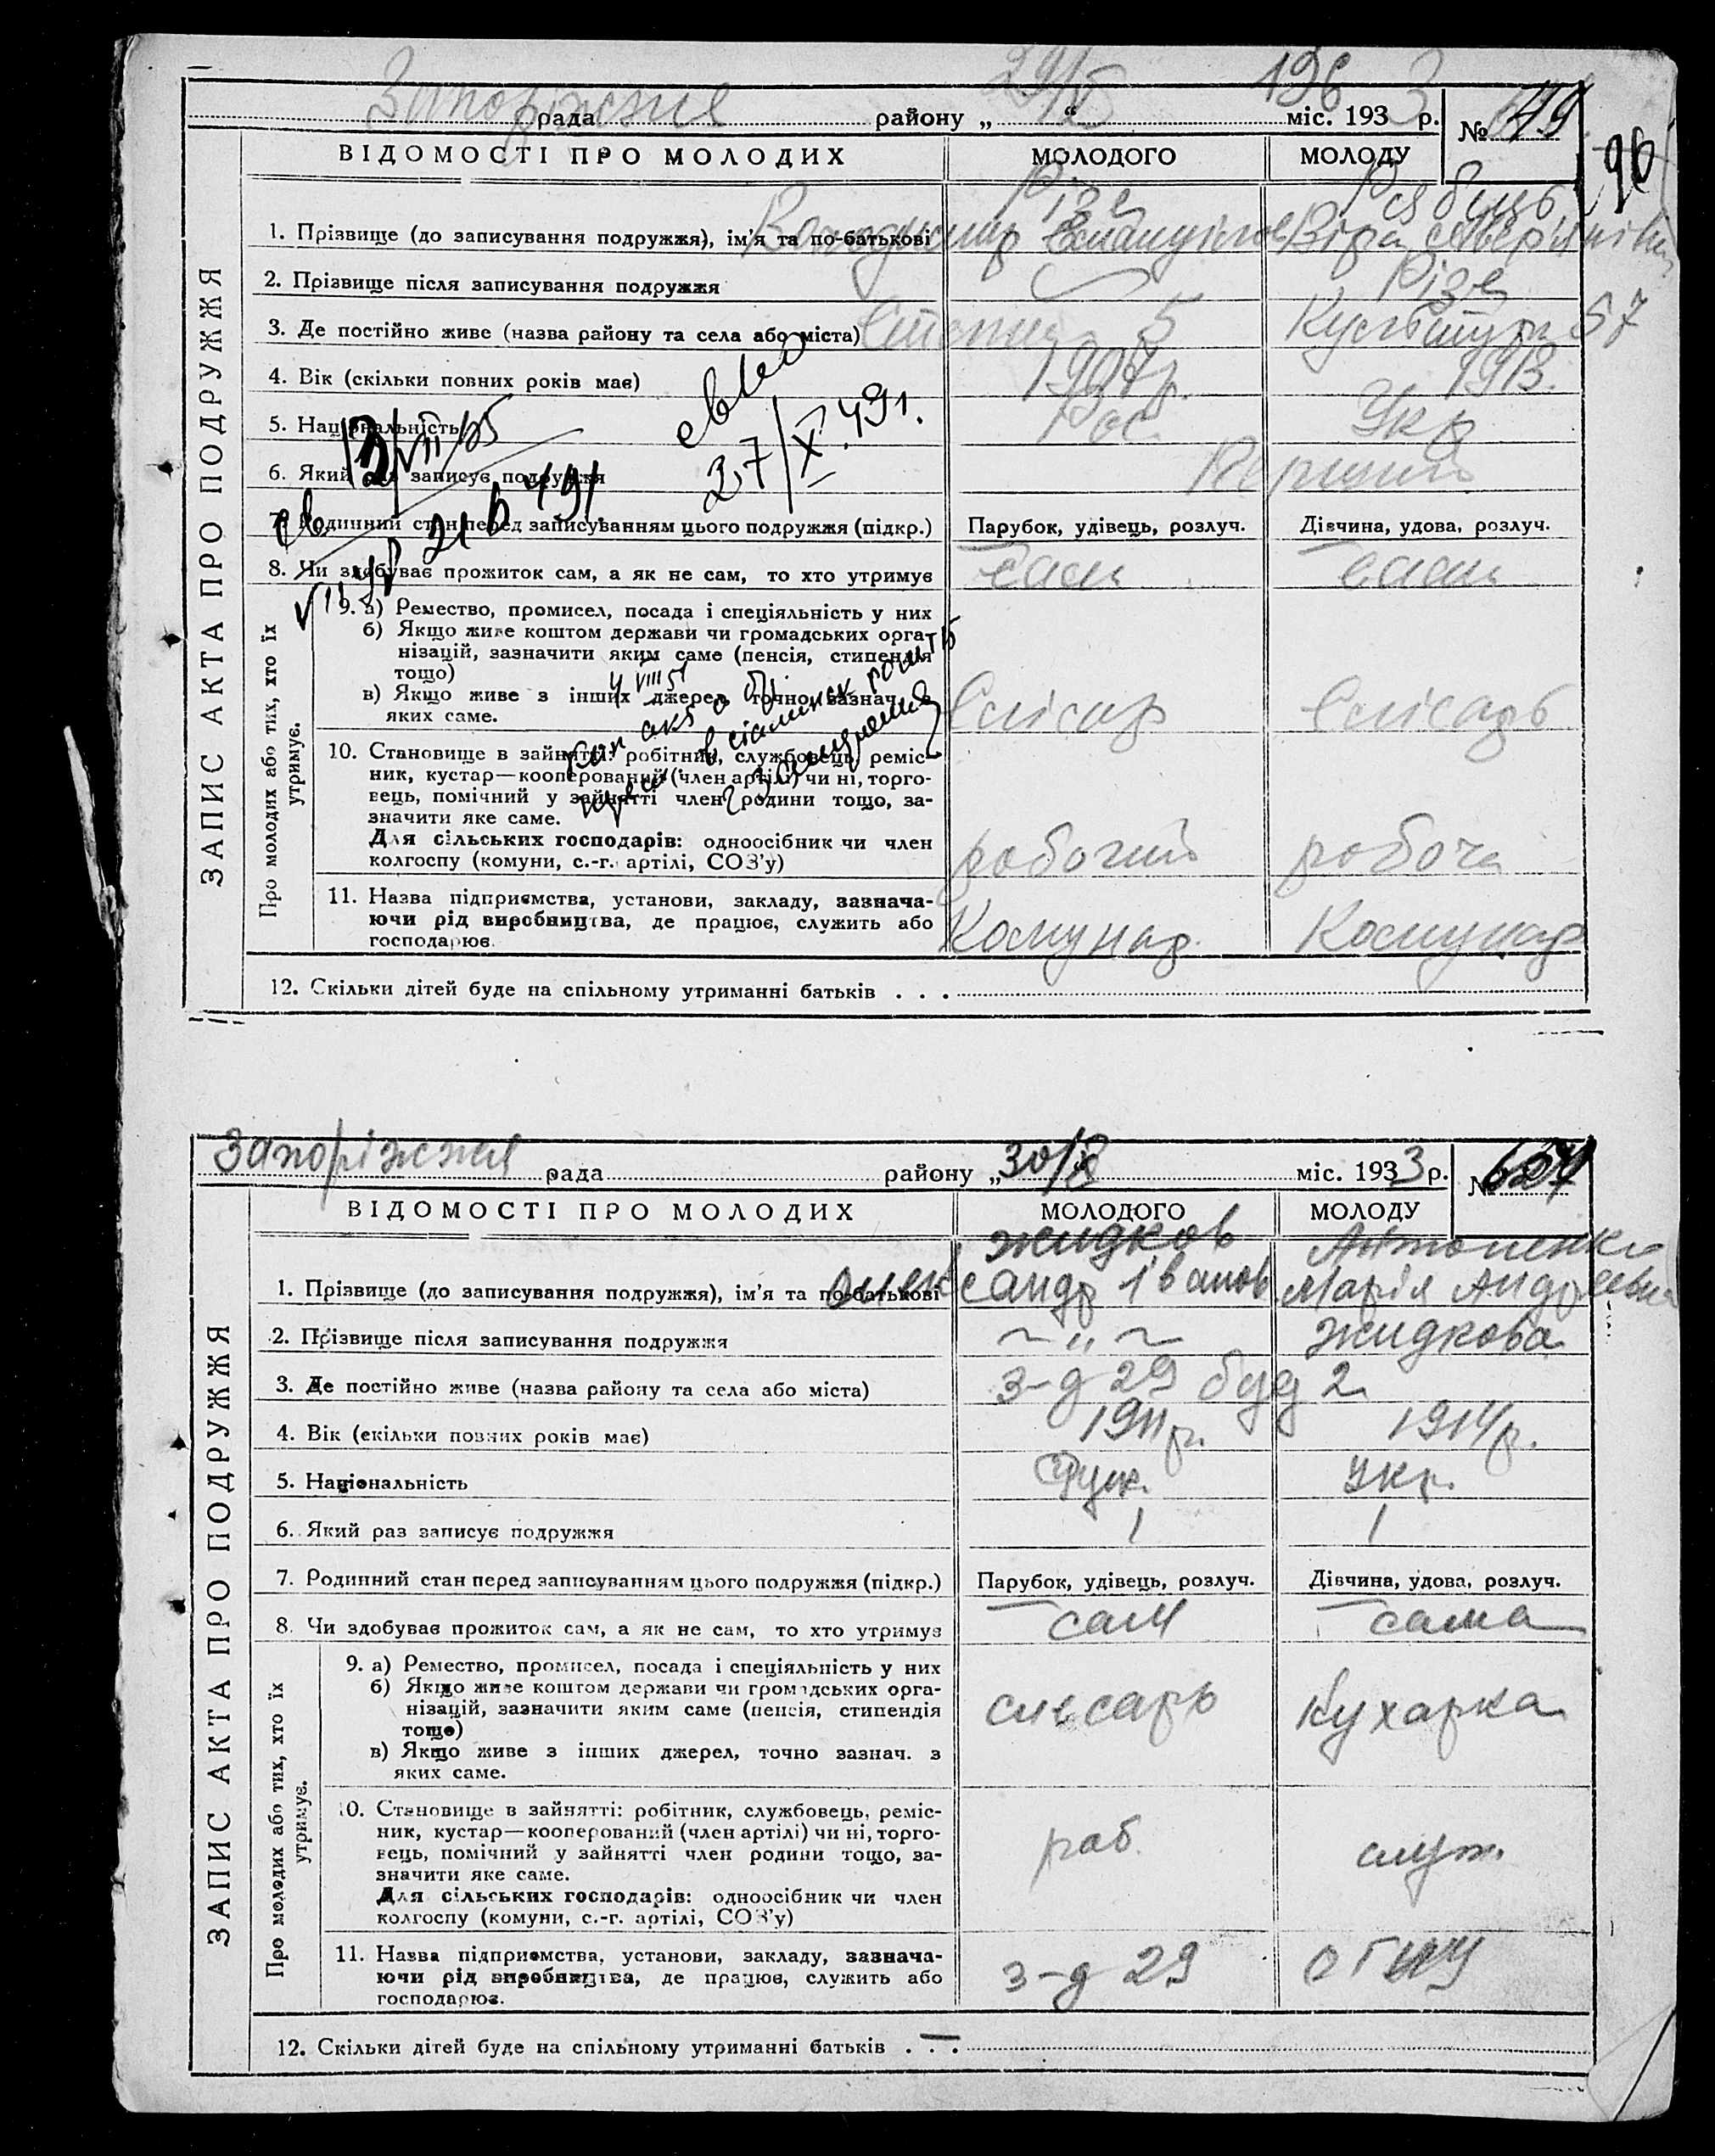 Запоріжжя рада району „ “ міс. 1933 р. №
96
ВІДОМОСТІ ПРО МОЛОДИХ МОЛОДОГО МОЛОДУ
ЗАПИС АКТА ПРО ПОДРУЖЖЯ
1. Прізвище (до записування подружжя), ім'я та по-батькові Різе Володимир Рябуць Віра
2. Прізвище після записування подружжя Різе
3. Де постійно живе (назва району та села або міста) 5 Культури 57
4. Вік (скільки повних років має) 1907р. 1913.
5. Національність Рос. Укр
6. Який раз записує подружжя Перший
27/X.49г.
7. Родинний стан перед записуванням цього подружжя (підкр.) Парубок, удівець, розлуч. Дівчина, удова, розлуч.
8. Чи здобуває прожиток сам, а як не сам, то хто утримує сам сама
Про молодих або тих, хто їх утримує.
9. а) Ремество, промисел, посада і спеціяльність у них
б) Якщо живе коштом держави чи громадських орга-
нізацій, зазначити яким саме (пенсія, стипендія
тощо)
в) Якщо живе з інших джерел, точно зазнач. з
яких саме.
Слісар Слісарь
10. Становище в зайнятті: робітник, службовець, реміс-
ник, кустар—кооперований (член артілі) чи ні, торго-
вець, помічний у зайнятті член родини тощо, за-
значити яке саме.
Для сільських господарів: одноосібник чи член
колгоспу (комуни, с.-г. артілі, СОЗ'у)
робочий робоча
11. Назва підприємства, установи, закладу, зазнача-
ючи рід виробництва, де працює, служить або
господарює.
Комунар. Комунар
12. Скільки дітей буде на спільному утриманні батьків . . .
Запоріжжя рада району „30/X міс. 1933 р. №
ВІДОМОСТІ ПРО МОЛОДИХ МОЛОДОГО МОЛОДУ
ЗАПИС АКТА ПРО ПОДРУЖЖЯ
1. Прізвище (до записування подружжя), ім'я та по-батькові Жидков Олександр Іванов. Антоненко Марія Андреевна
2. Прізвище після записування подружжя ~ " ~ Жидкова
3. Де постійно живе (назва району та села або міста) з-д 29 буд 2
4. Вік (скільки повних років має) 1911р. 1914р.
5. Національність Рус. Укр.
6. Який раз записує подружжя 1 1
7. Родинний стан перед записуванням цього подружжя (підкр.) Парубок, удівець, розлуч. Дівчина, удова, розлуч.
8. Чи здобуває прожиток сам, а як не сам, то хто утримує сам сама
Про молодих або тих, хто їх утримує.
9. а) Ремество, промисел, посада і спеціяльність у них
б) Якщо живе коштом держави чи громадських орга-
нізацій, зазначити яким саме (пенсія, стипендія
тощо)
в) Якщо живе з інших джерел, точно зазнач. з
яких саме.
слесарь Кухарка
10. Становище в зайнятті: робітник, службовець, реміс-
ник, кустар—кооперований (член артілі) чи ні, торго-
вець, помічний у зайнятті член родини тощо, за-
значити яке саме.
Для сільських господарів: одноосібник чи член
колгоспу (комуни, с.-г. артілі, СОЗ'у)
раб. служ.
11. Назва підприємства, установи, закладу, зазнача-
ючи рід виробництва, де працює, служить або
господарює.
з-д 29
12. Скільки дітей буде на спільному утриманні батьків . . . —